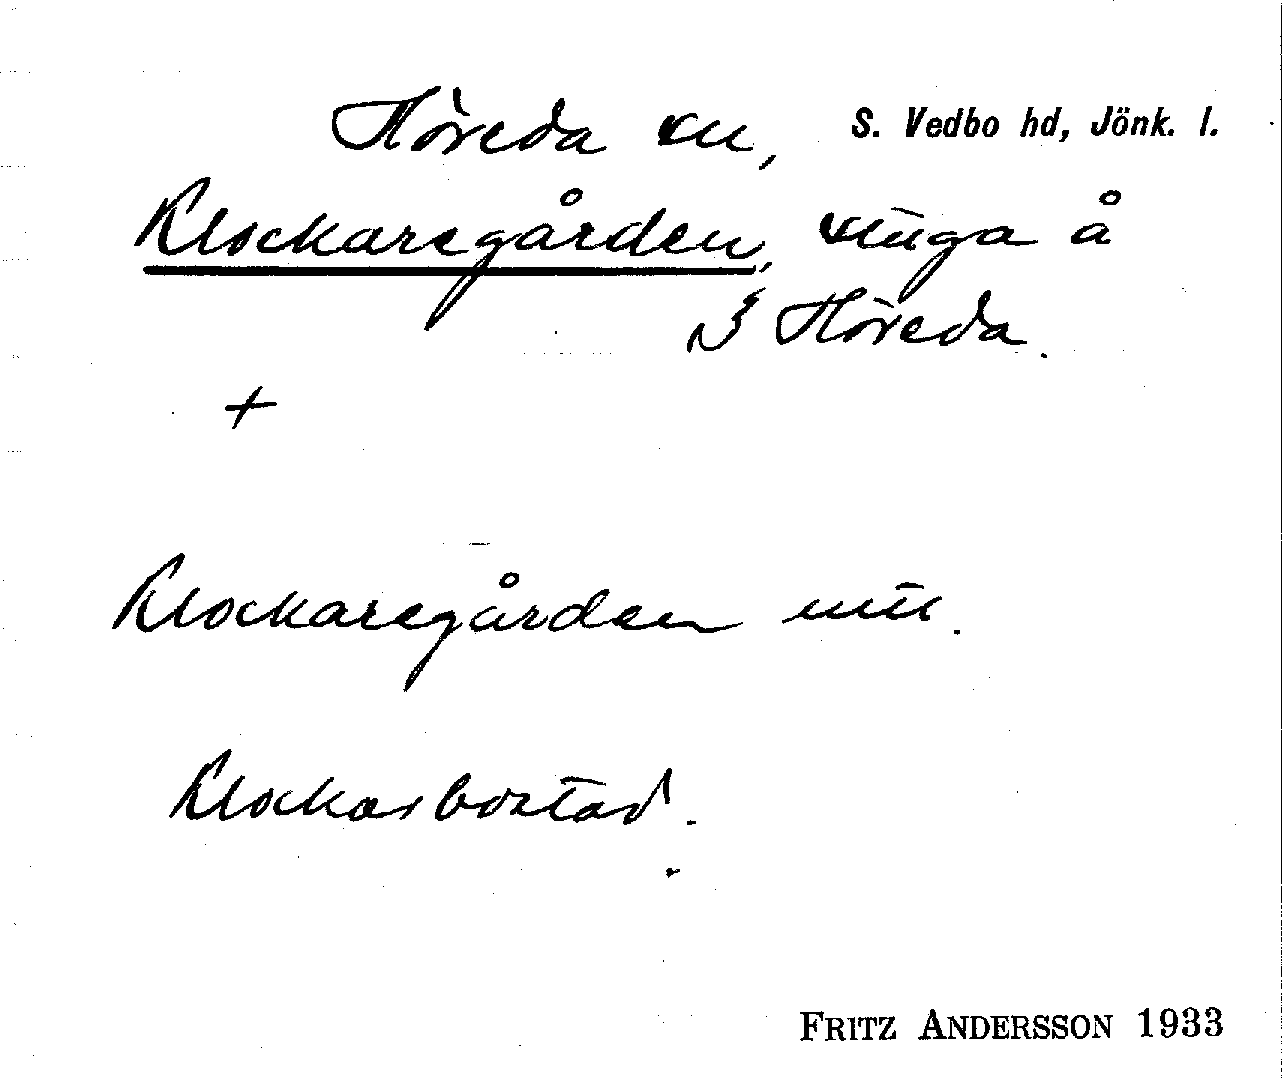 Höreda sn, S. Vedbo hd, Jönk. l.
Klockaregården, stuga å
3 Höreda.
+
Klockaregården mtl.
Klockarbostad.
FRITZ ANDERSSON 1933